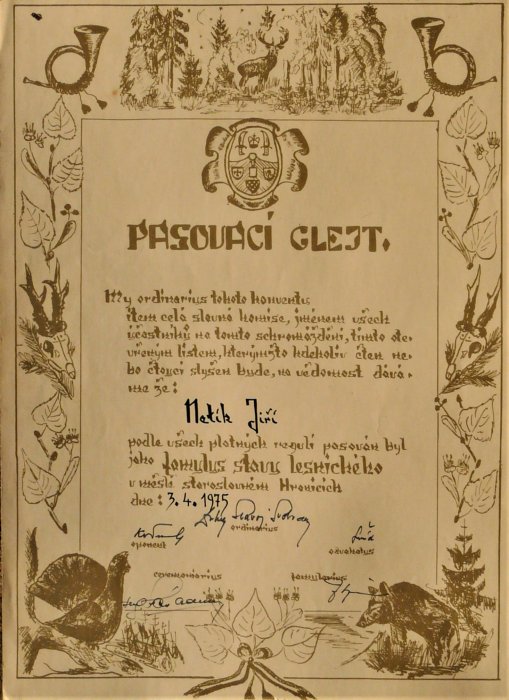 PASOVACÍ GLEJT.
My ordinarius tohoto konventu
item celá slovná komise, jménem všech
účastníků na tomto schromáždění, tímto ote-
vřeným listem, kterýmžto kdeholiv čten ne-
bo čtoucí slyšen bude, na vědomost dává-
me že:
Netík Jiří
podle všech platných regulí pasován byl
jako famulus stavu lesnického
v městě staroslavném Hranicích
dne: 3.4.1975
ordinarius
oponent
advokatus
ceremoniarius
famularius